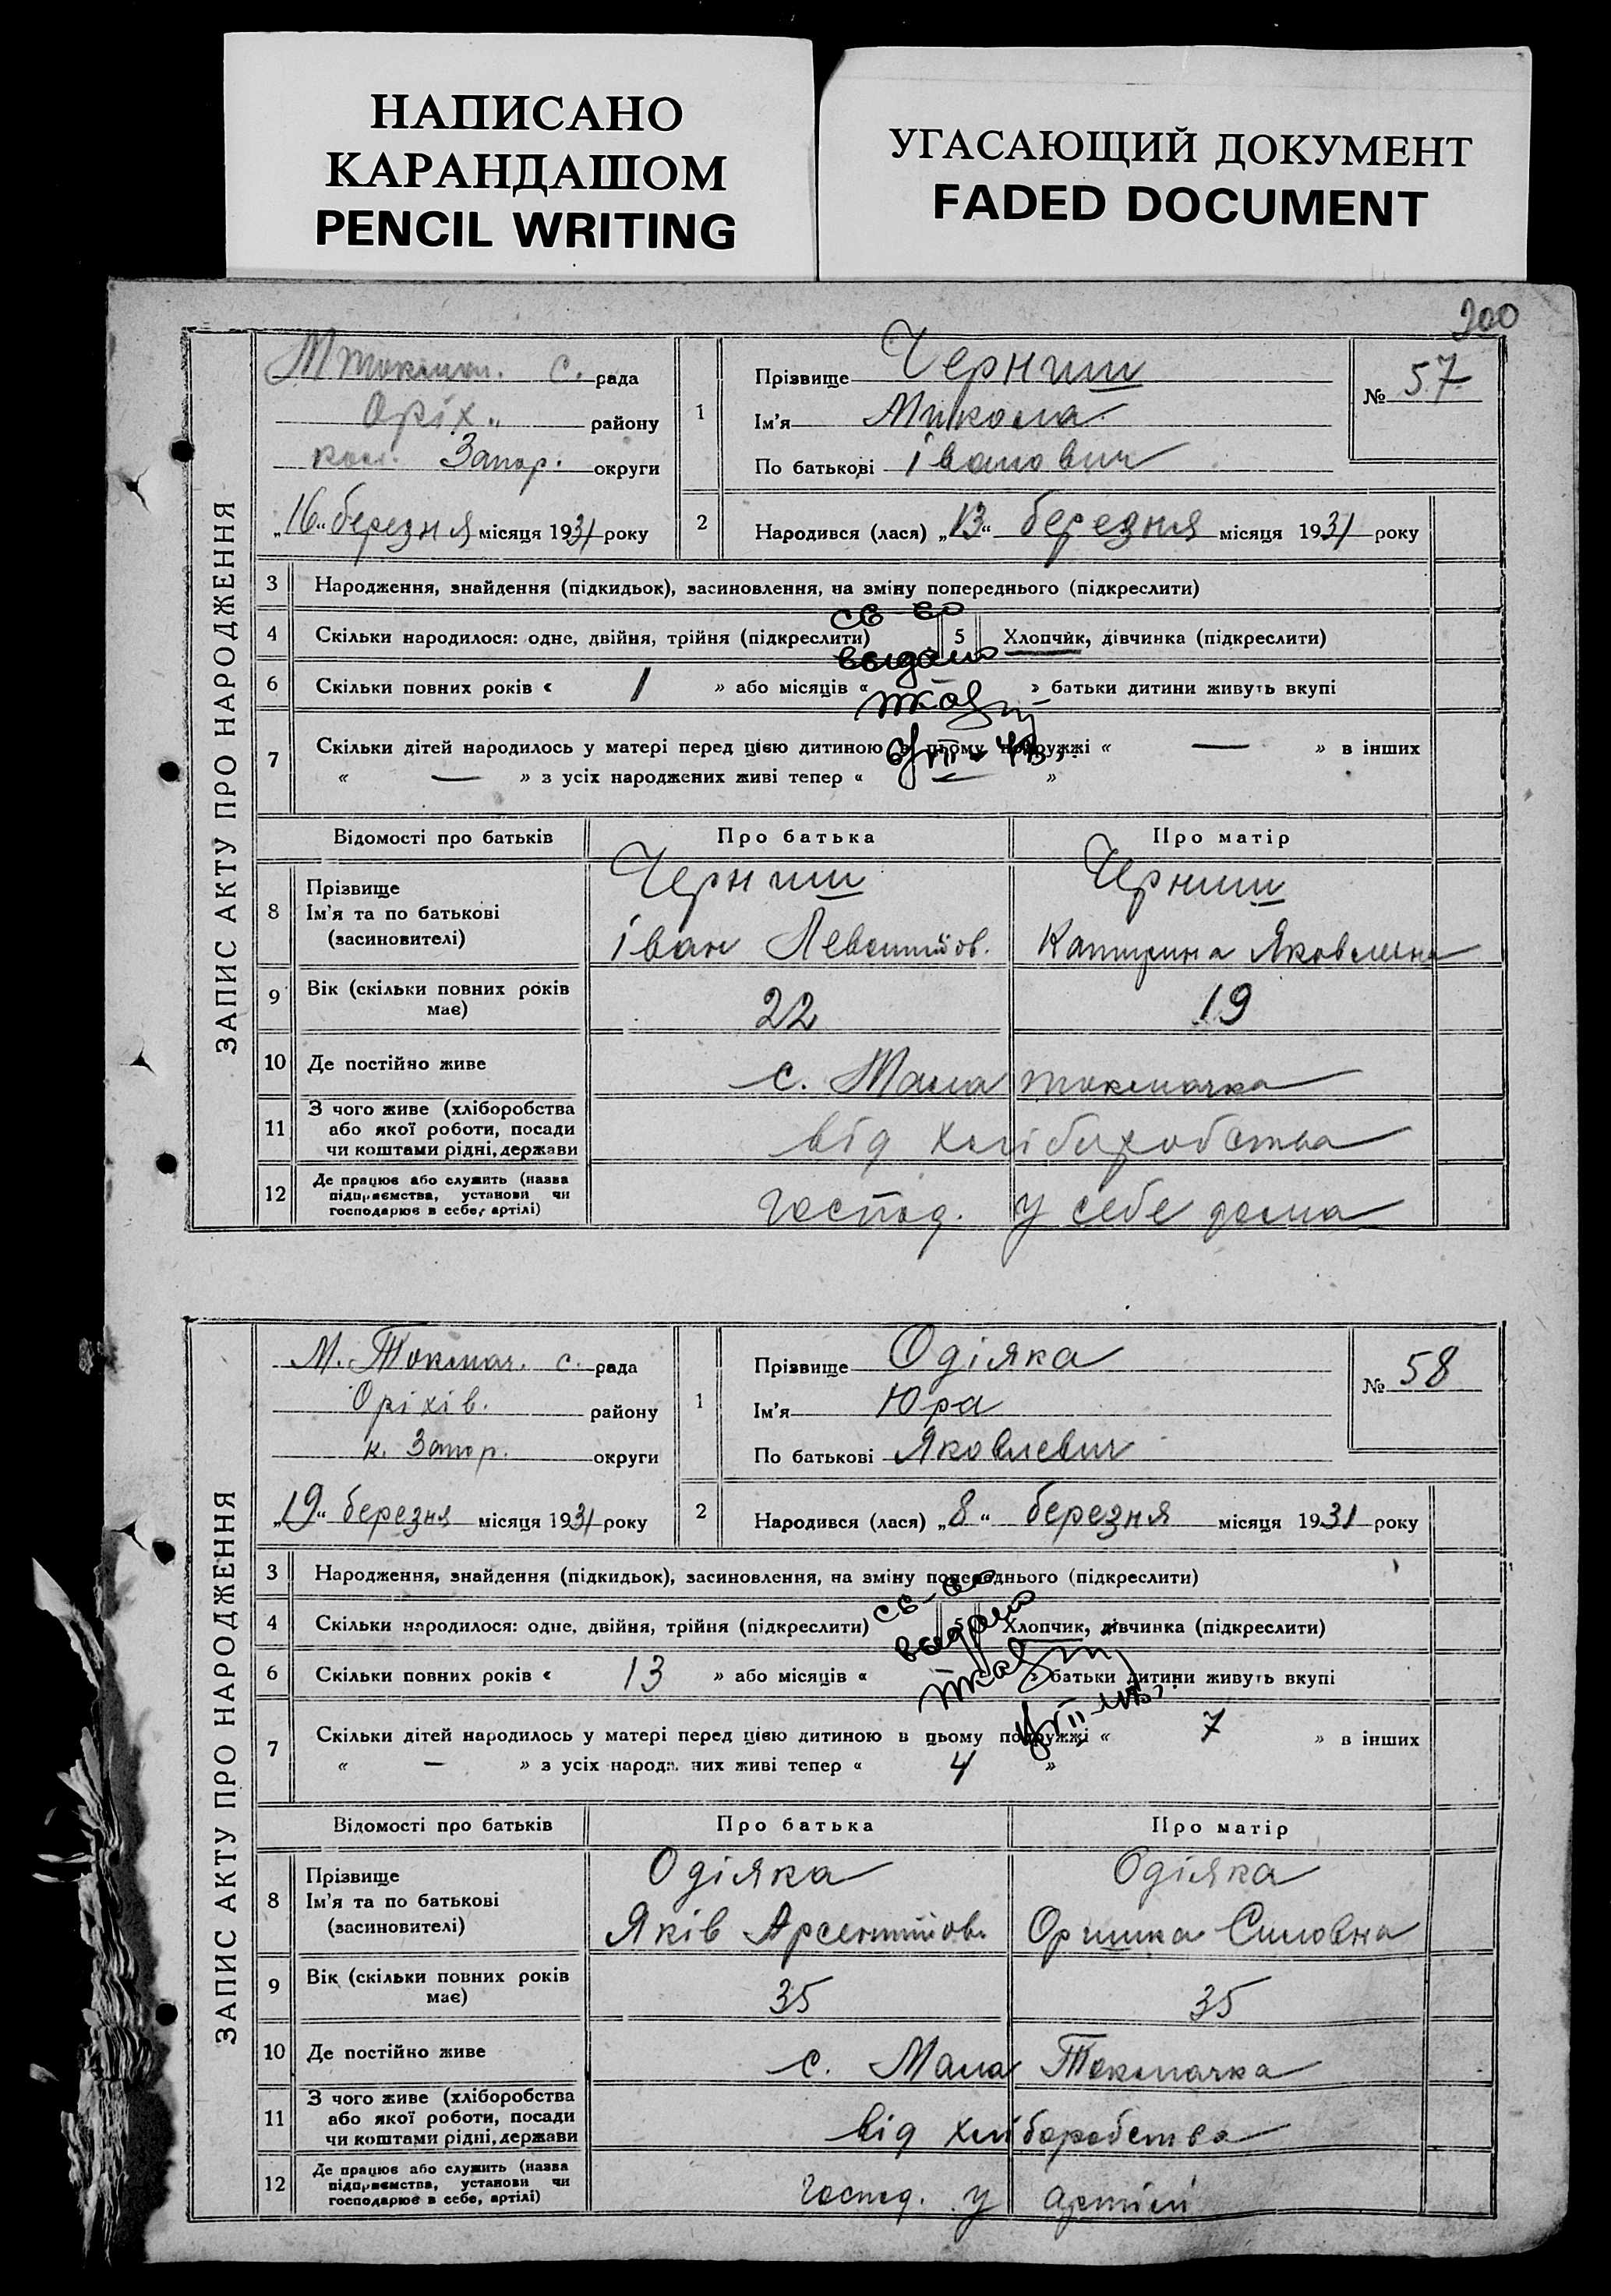 НАПИСАНО
КАРАНДАШОМ
PENCIL WRITING
УГАСАЮЩИЙ ДОКУМЕНТ
FADED DOCUMENT
200
ЗАПИС АКТУ ПРО НАРОДЖЕННЯ
М Токмач. с. рада
Оріх. району
кол. Запор. округи
„16“ березня місяця 1931 року
1
Прізвище Черниш
Ім'я Микола
По батькові Іванович
№ 57
2 Народився (лася) „13“ березня місяця 1931 року
3 Народження, знайдення (підкидьок), засиновлення, на зміну попереднього (підкреслити)
4 Скільки народилося: одне, двійня, трійня (підкреслити) 5 Хлопчик, дівчинка (підкреслити)
св-во
выдано
6 Скільки повних років « 1 » або місяців « » батьки дитини живуть вкупі
7 Скільки дітей народилось у матері перед цією дитиною в цьому подружжі « — » в інших
« — » з усіх народжених живі тепер « — »
Відомості про батьків Про батька Про матір
8 Прізвище Ім'я та по батькові (засиновителі)
Черниш Черниш
Іван Левонтійов. Катирина Яковлевна
9 Вік (скільки повних років має) 22 19
10 Де постійно живе с. Мала токмачка
11 З чого живе (хліборобства або якої роботи, посади чи коштами рідні, держави від хліборобства
12 Де працює або служить (назва підприємства, установи чи господарює в себе, артілі) господ. у себе дома
ЗАПИС АКТУ ПРО НАРОДЖЕННЯ
М. Токмач. с. рада
Оріхів. району
к. Запор. округи
„19“ березня місяця 1931 року
1
Прізвище Одіяка
Ім'я Юра
По батькові Яковлевич
№ 58
2 Народився (лася) „8“ березня місяця 1931 року
3 Народження, знайдення (підкидьок), засиновлення, на зміну попереднього (підкреслити)
4 Скільки народилося: одне, двійня, трійня (підкреслити) 5 Хлопчик, дівчинка (підкреслити)
св-во
выдано
6 Скільки повних років « 13 » або місяців « » батьки дитини живуть вкупі
7 Скільки дітей народилось у матері перед цією дитиною в цьому подружжі « 7 » в інших
« — » з усіх народж. них живі тепер « 4 »
Відомості про батьків Про батька Про матір
8 Прізвище Ім'я та по батькові (засиновителі)
Одіяка Одіяка
Яків Арсентійов. Оришка Силовна
9 Вік (скільки повних років має) 35 35
10 Де постійно живе с. Мала Токмачка
11 З чого живе (хліборобства або якої роботи, посади чи коштами рідні, держави від хліборобства
12 Де працює або служить (назва підприємства, установи чи господарює в себе, артілі) господ. у артілі